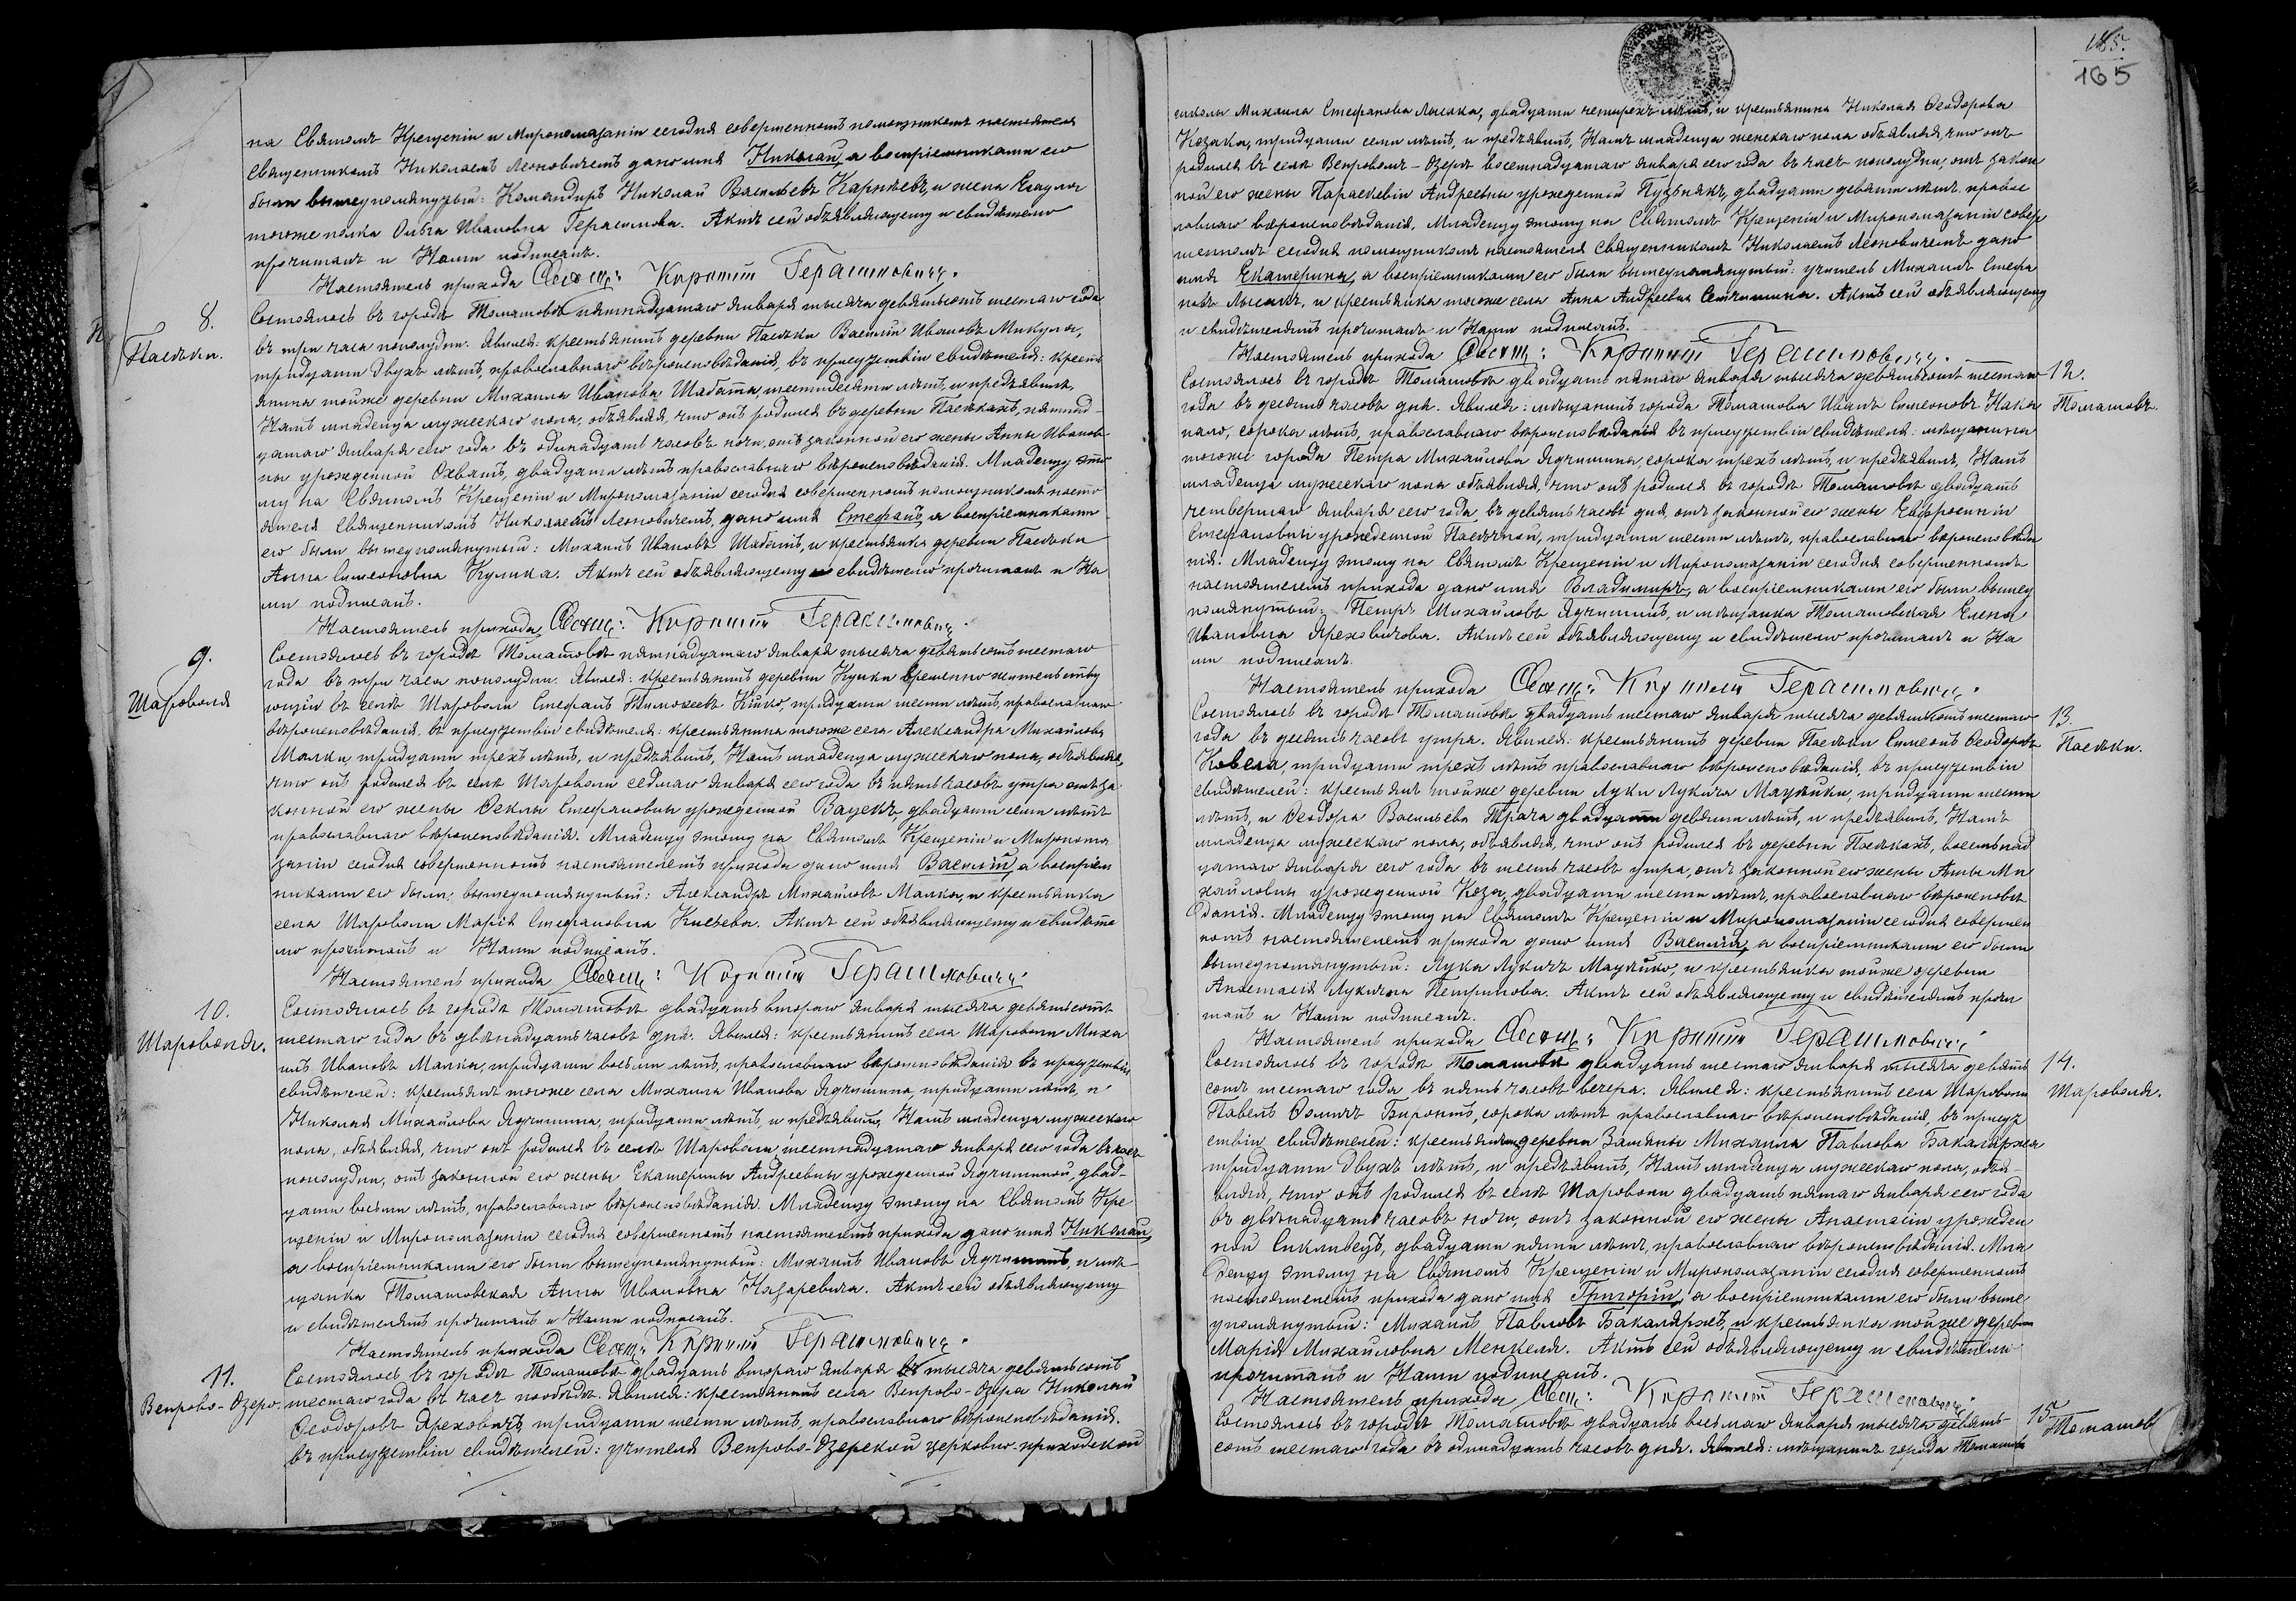 на Святомъ Крещеніи и Миропомазаніи сегодня совершенномъ помощникомъ настоятеля
священникомъ Николаемъ Леоновичемъ дано имя Николай, а воспріемниками его
были вышеупомянутый: Командиръ Николай Васильевъ и жена Есаула
тогоже полка Ольга Ивановна Герасимова. Актъ сей объявляющему и свидѣтелю
прочитанъ и Нами подписанъ.
Настоятель прихода Свящ: Кириллъ Герасимовичъ.
8.
Пасѣки.
Состоялось въ городѣ Томашовѣ пятнадцатаго января тысяча девятьсотъ шестаго года
въ три часа пополудни. Явился: крестьянинъ деревни Пасѣки Василій Ивановъ Микула,
тридцати двухъ лѣтъ, православнаго вѣроисповѣданія, въ присутствіи свидѣтеля: кресть
янина тойже деревни Михаила Иванова Шабата, шестидесяти лѣтъ, и предъявилъ
Намъ младенца мужескаго пола, объявляя, что онъ родился въ деревни Пасѣкахъ, пятнад-
цатаго января сего года въ одинадцать часовъ ночи, отъ законной его жены Анны Иванов
ны урожденной Охванъ, двадцати лѣтъ православнаго вѣроисповѣданія. Младенцу это
му на Святомъ Крещеніи и Миропомазаніи сегодня совершенномъ помощникомъ насто
ятеля Священникомъ Николаемъ Леоновичемъ, дано имя Стефанъ, а воспріемниками
его были вышеупомянутый: Михаилъ Ивановъ Шабатъ, и крестьянка деревни Пасѣки
Анна Симеоновна Кулика. Актъ сей объявляющему и свидѣтелю прочитанъ и На
ми подписанъ.
Настоятель прихода Свящ: Кириллъ Герасимовичъ.
9.
Шароволя
Состоялось въ городѣ Томашовѣ пятнадцатаго января тысяча девятьсотъ шестаго
года въ три часа пополудни. Явился: крестьянинъ деревни Кунки временно жительству
ющій въ селѣ Шароволи Стефанъ Тимофеевъ Кицко, тридцати шести лѣтъ, православнаго
вѣроисповѣданія, въ присутствіи свидѣтеля: крестьянина тогоже села Александра Михайлова
Малки, тридцати трехъ лѣтъ, и предъявилъ, Намъ младенца мужескаго пола, объявляя,
что онъ родился въ селѣ Шароволи седмаго января сего года въ пять часовъ утра отъ за
конной его жены Феклы Стефановны урожденной Вацекъ двадцати семи лѣтъ
православнаго вѣроисповѣданія. Младенцу этому на Святомъ Крещеніи и Миропома
заніи сегодня совершенномъ настоятелемъ прихода дано имя Василій, а воспріем
никами его были, вышеупомянутый: Александръ Михайловъ Малка, и крестьянка
села Шароволи Марія Стефановна Кисѣева. Актъ сей объявляющему и свидѣте
лю прочитанъ и Нами подписанъ.
Настоятель прихода Свящ: Кириллъ Герасимовичъ
10.
Шароволя.
Состоялось въ городѣ Томашовѣ двадцать втораго января тысяча девятьсотъ
шестаго года въ двѣнадцать часовъ дня. Явился: крестьянинъ села Шароволи Миха
илъ Ивановъ Малка, тридцати восьми лѣтъ, православнаго вѣроисповѣданія въ присутствіи
свидѣтелей: крестьянъ тогоже села Михаила Иванова Ядчишина, тридцати лѣтъ, и
Николая Михайлова Ядчишина, тридцати лѣтъ, и предъявилъ, Намъ младенца мужескаго
пола, объявляя, что онъ родился въ селѣ Шароволи шестнадцатаго января сего года въ часъ
пополудни, отъ законной его жены Екатерины Андреевны урожденной Ядчишиной, двад-
цати восьми лѣтъ, православнаго вѣроисповѣданія. Младенцу этому на Святомъ Кре
щеніи и Миропомазаніи сегодня совершенномъ настоятелемъ прихода дано имя Николай,
а воспріемниками его были вышеупомянутый: Михаилъ Ивановъ Ядчишинъ, и мѣ-
щанка Томашовская Анна Ивановна Назаревича. Актъ сей объявляющему
и свидѣтелямъ прочитанъ и Нами подписанъ.
Настоятель прихода Свящ. Кириллъ Герасимовичъ.
11.
Венрово-Озеро.
Состоялось въ городѣ Томашовѣ двадцать втораго января тысяча девятьсотъ
шестаго года въ часъ пообѣдѣ. Явился: крестьянинъ села Венрово-Озера Николай
Феодоровъ Яреховичъ, тридцати шести лѣтъ, православнаго вѣроисповѣданія.
въ присутствіи свидѣтелей: учителя Венрово-Озерской церковно-приходской
165.
165
школы Михаила Стефанова Лысака, двадцати четырехъ лѣтъ, и крестьянина Николая Феодорова
Козака, тридцати семи лѣтъ, и предъявилъ, Намъ младенца женскаго пола объявляя, что онъ
родился въ селѣ Венровомъ-Озерѣ восемнадцатаго января сего года въ часъ пополудни, отъ закон
ной его жены Параскевіи Андреевны урожденной Пузьнякъ, двадцати девяти лѣтъ, правос
лавнаго вѣроисповѣданія, Младенцу этому на Святомъ Крещеніи и Миропомазаніи совер
шенномъ сегодня помощникомъ настоятеля Священникомъ Николаемъ Леоновичемъ дано
имя Екатерина, а воспріемниками его были вышеупомянутый: учитель Михаилъ Стефа
новъ Лысакъ, и крестьянка тогоже села Анна Андреевна Семчишина. Актъ сей объявляющему
и свидѣтелямъ прочитанъ и Нами подписанъ.
Настоятель прихода Свящ: Кириллъ Герасимовичъ.
12.
Томашовъ.
Состоялось въ городѣ Томашовѣ двадцать пятаго января тысяча девятьсотъ шестаго
года въ десять часовъ дня. Явился: мѣщанинъ города Томашова Иванъ Симеоновъ Нако
нало, сорока лѣтъ, православнаго вѣроисповѣданія въ присутствіи свидѣтеля: мѣщанина
тогоже города Петра Михайлова Ядчишина, сорока трехъ лѣтъ, и предъявилъ, Намъ
младенца мужескаго пола объявляя, что онъ родился въ городѣ Томашовѣ двадцать
четвертаго января сего года, въ девять часовъ дня, отъ законной его жены Евфросиніи
Стефановны урожденной Пасѣчной, тридцати шести лѣтъ, православнаго вѣроисповѣда
нія. Младенцу этому на Святомъ Крещеніи и Миропомазаніи сегодня совершенномъ
настоятелемъ прихода дано имя Владиміръ, а воспріемниками его были вышеу
помянутый: Петръ Михайловъ Ядчишинъ, и мѣщанка Томашовская Елена
Ивановна Яреховичова. Актъ сей объявляющему и свидѣтелю прочитанъ и На
ми подписанъ.
Настоятель прихода Свящ: Кириллъ Герасимовичъ.
13.
Пасѣки.
Состоялось въ городѣ Томашовѣ двадцать шестаго января тысяча девятьсотъ шестаго
года въ десять часовъ утра. Явился: крестьянинъ деревни Пасѣки Симеонъ Феодоровъ
Ковела, тридцати трехъ лѣтъ православнаго вѣроисповѣданія, въ присутствіи
свидѣтелей: крестьянъ тойже деревни Луки Лукича Мацѣйки, тридцати шести
лѣтъ, и Феодора Васильева Трача двадцати девяти лѣтъ, и предъявилъ, Намъ
младенца мужескаго пола, объявляя, что онъ родился въ деревни Пасѣкахъ, восемнад
цатаго января сего года въ шесть часовъ утра, отъ законной его жены Анны Ми
хайловны урожденной Коза, двадцати шести лѣтъ, православнаго вѣроисповѣ
данія. Младенцу этому на Святомъ Крещеніи и Миропомазаніи сегодня совершен
номъ настоятелемъ прихода дано имя Василій, а воспріемниками его были
вышеупомянутый: Лука Лукичъ Мацѣйко, и крестьянка тойже деревни
Анастасія Лукична Петринова. Актъ сей объявляющему и свидѣтелямъ прочи
танъ и Нами подписанъ.
Настоятель прихода Свящ: Кириллъ Герасимовичъ
14.
Шароволя.
Состоялось въ городѣ Томашовѣ двадцать шестаго января тысяча девять
сотъ шестаго года въ пять часовъ вечера. Явился: крестьянинъ села Шароволи
Павелъ Фомичъ Биронтъ, сорока лѣтъ православнаго вѣроисповѣданія, въ присут
ствіи свидѣтелей: крестьянина деревни Замяны Михаила Павлова Бакаляржа
тридцати двухъ лѣтъ, и предъявилъ, Намъ младенца мужескаго пола, объя-
вляя, что онъ родился въ селѣ Шароволи двадцать пятаго января сего года
въ двѣнадцать часовъ ночи, отъ законной его жены Анастасіи урожден
ной двадцати пяти лѣтъ, православнаго вѣроисповѣданія. Мла
денцу этому на Святомъ Крещеніи и Миропомазаніи сегодня совершенномъ
настоятелемъ прихода дано имя Григорій, а воспріемниками его были выше
упомянутый: Михаилъ Павловъ Бакаляржъ, и крестьянка тойже деревни
Марія Михайловна Менкеля. Актъ сей объявляющему и свидѣтелю
прочитанъ и Нами подписанъ.
Настоятель прихода Свящ: Кириллъ Герасимовичъ.
15.
Томашовъ
Состоялось въ городѣ Томашовѣ двадцать восьмаго января тысяча девять-
сотъ шестаго года въ одинадцать часовъ дня. Явился: мѣщанинъ города Томашова